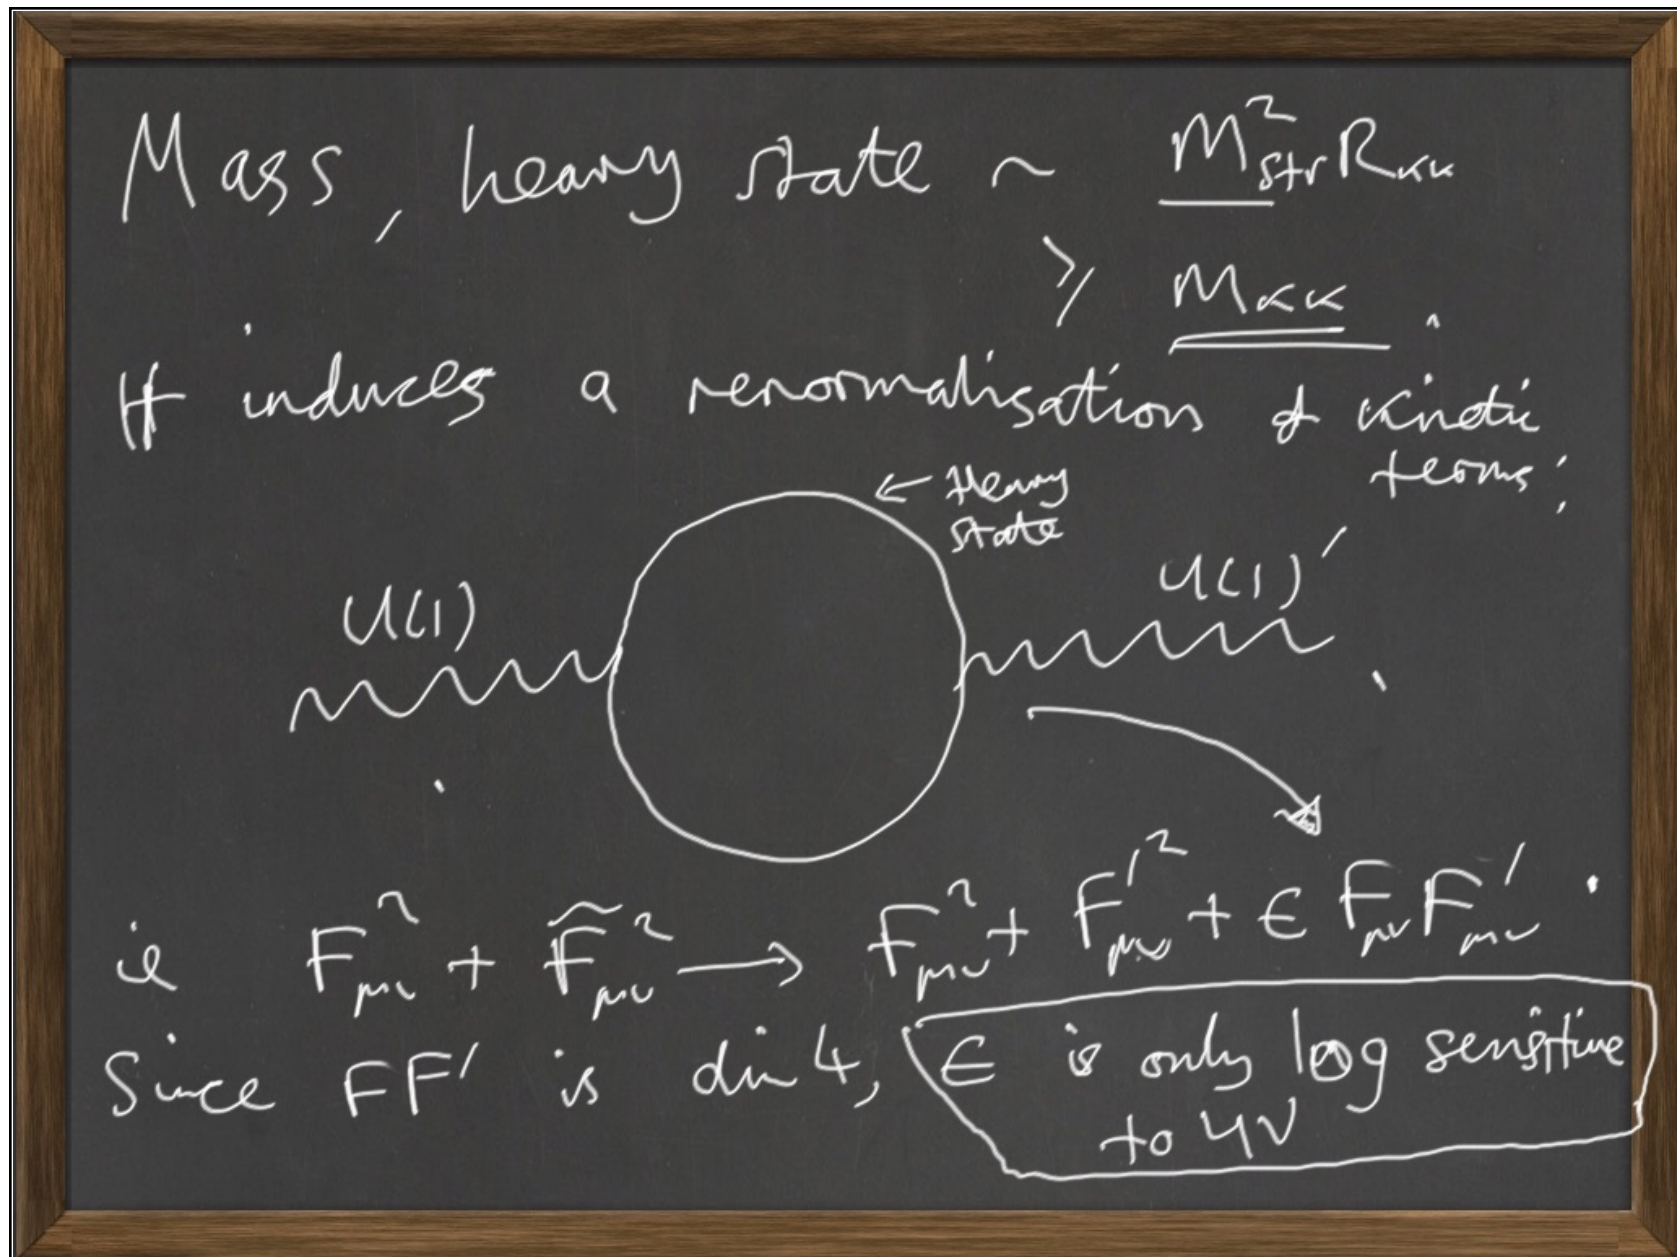 Mass, heavy state ~ M²str Rκκ
≥ Mκκ.
It induces a renormalisation of kinetic
terms:
← Heavy
state
U(1)
U(1)′
ie Fμν² + F̃μν² → Fμν² + F′μν² + ϵ Fμν F′μν.
Since FF′ is dim 4, ϵ is only log sensitive
to UV